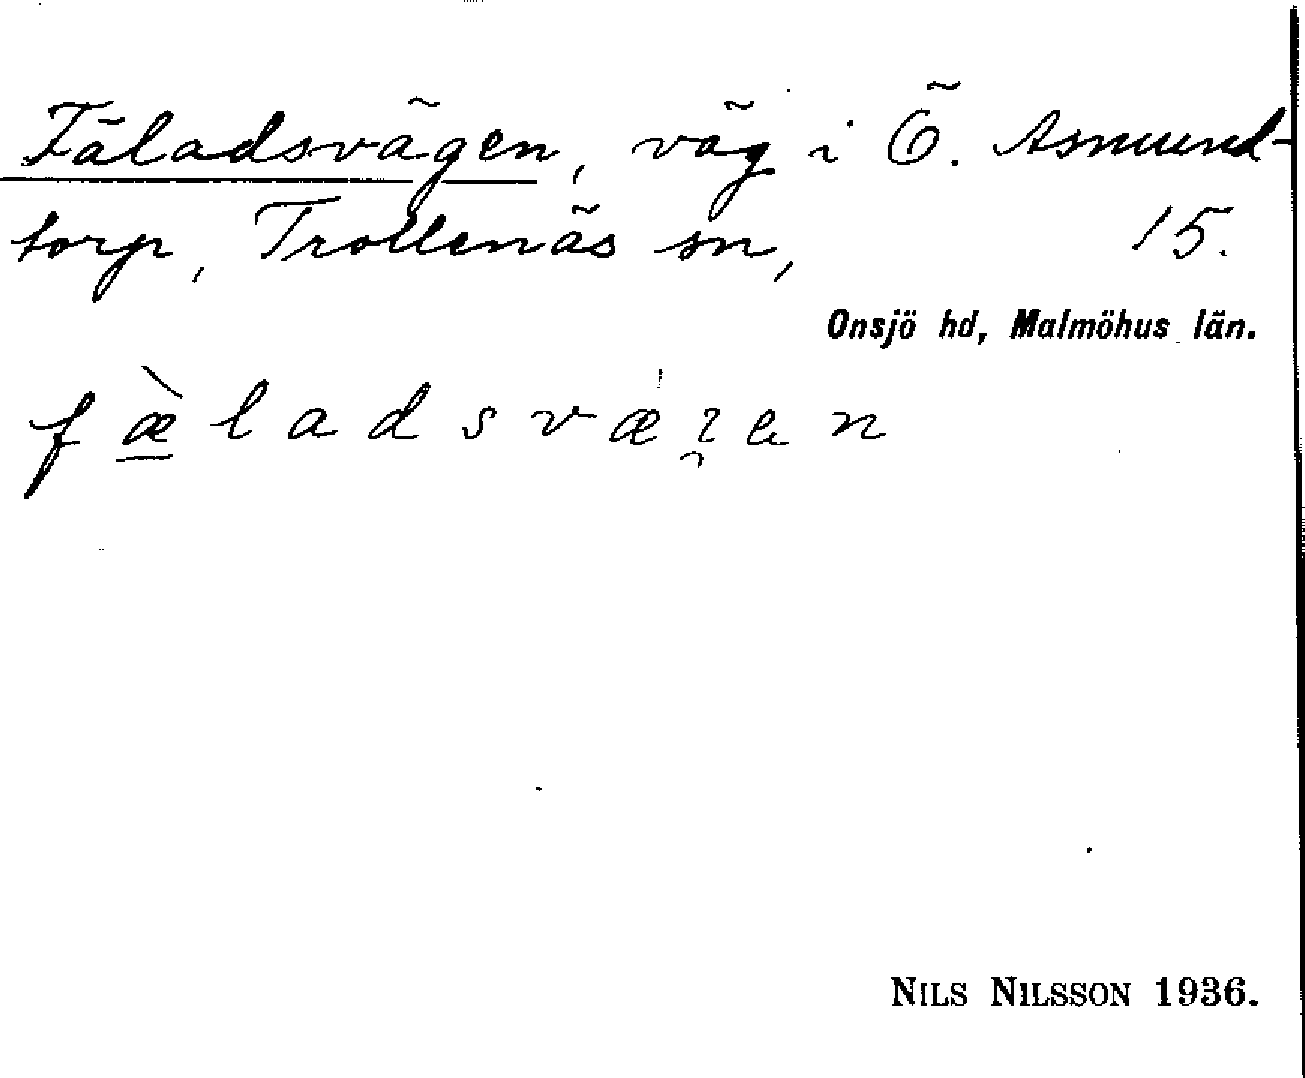 Fäladsvägen, väg i Ö. Asmund-
torp, Trollenäs sn, 15.
Onsjö hd, Malmöhus län.
fæ̀ladsvæ̍ɿ̯en
NILS NILSSON 1936.